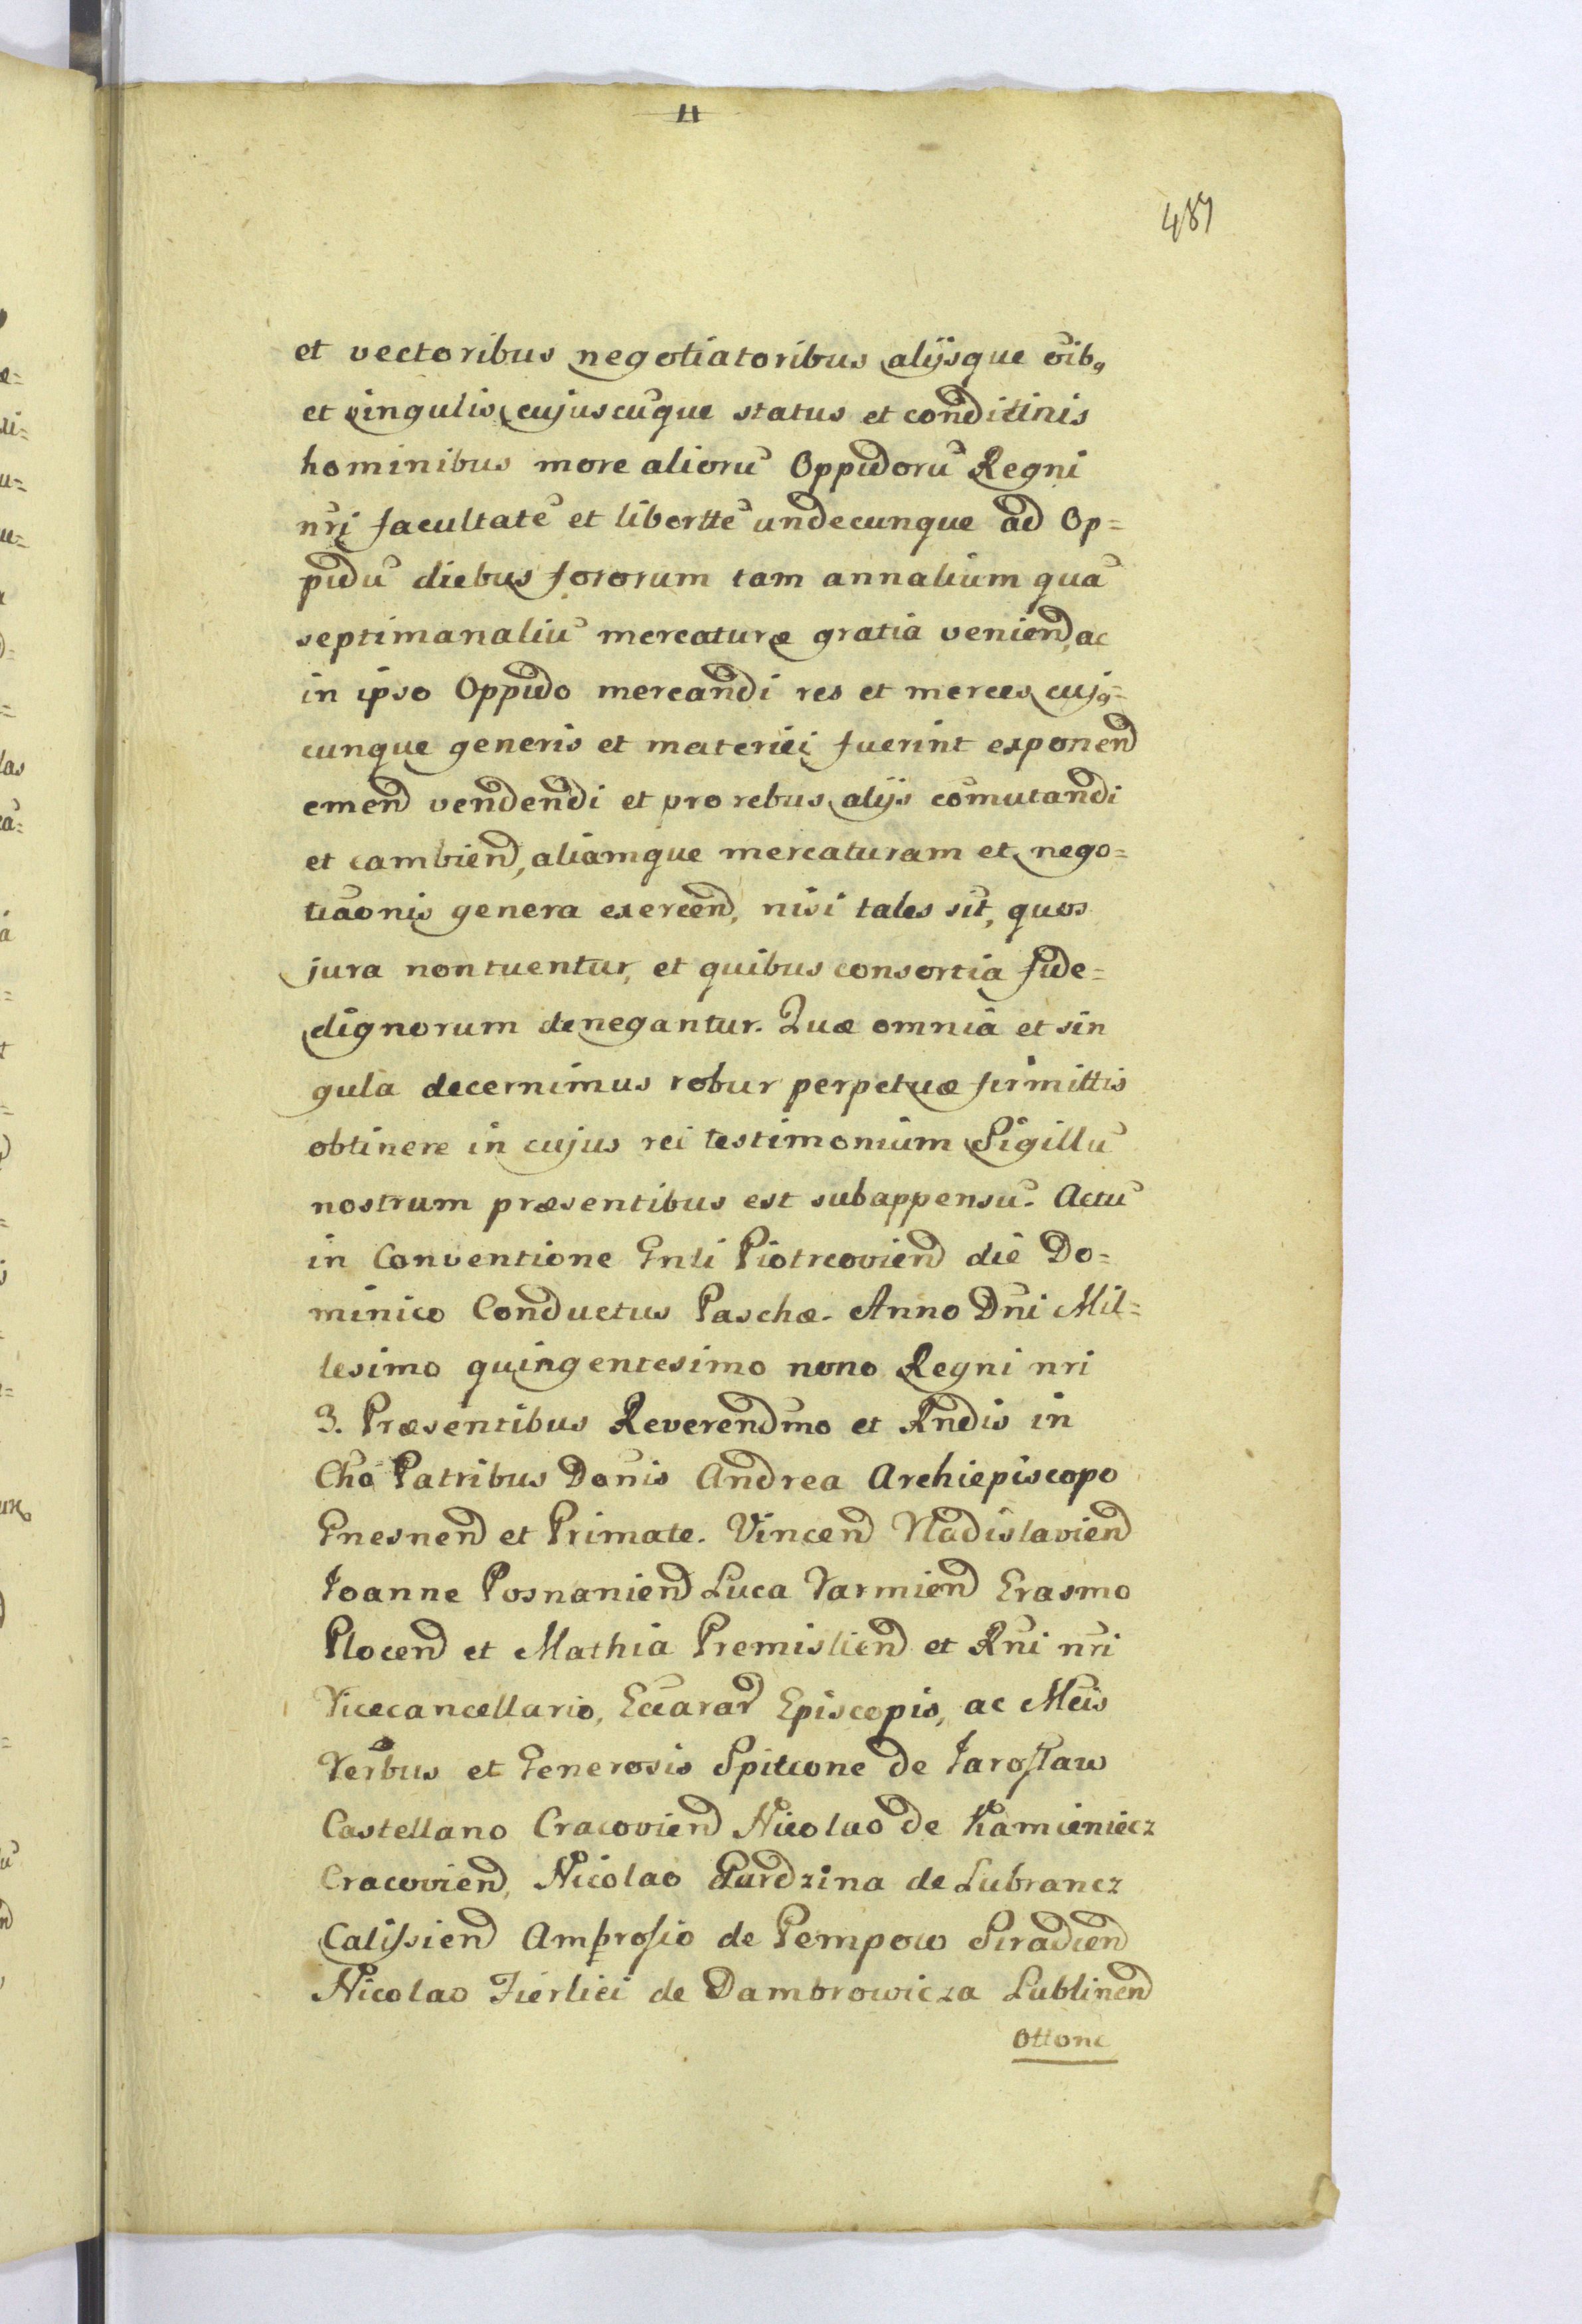 487
et vectoribus negotiatoribus alijsque oı̃bꝫ
et singulis cujuscũque status et conditinis
hominibus more aliorũ Oppidorũ Regni
nr̃i facultatẽ et libertte͂ undecunque ad Op=
pidũ diebus fororum tam annalium quã
septimanaliũ mercaturæ gratia veniend, ac
in ipso Oppido mercandi res et merces cujꝫ=
cunque generis et materiei fuerint exponend
emend vendendi et pro rebus alijs com̃utandi
et cambiend, aliamque mercaturam et nego=
tiaõnis genera exercend, nisi tales sĩt, quos
jura non tuentur, et quibus consortia fide=
dignorum denegantur. Quæ omnia et sin
gula decernimus robur perpetuæ firmittis
obtinere in cujus rei testimonium Sigillũ
nostrum præsentibus est subappensũ. Actũ
in Conventione Gnli Piotrcoviend die Do=
minico Conductus Paschæ. Anno Dñi Mil=
lesimo quingentesimo nono Regni nri
3. Præsentibus Reverendmo et Rndis in
Chõ Patribus Dõnis Andrea Archiepiscopo
Gnesnend et Primate. Vincend Vladislaviend
Joanne Posnaniend Luca Varmiend Erasmo
Plocend et Mathia Premisliend et Rñi nr̃i
Vicecancellario, Eccarar Episcopis, ac Mcis
Verbus et Generosis Spitcone de Jaroslaw
Castellano Cracoviend Nicolao de Kamieniecz
Cracoviend, Nicolao Gardzina de Lubrancz
Calissiend Ambrosio de Pempow Siradiend
Nicolao Fierliei de Dambrowicza Lublinend
Ottone